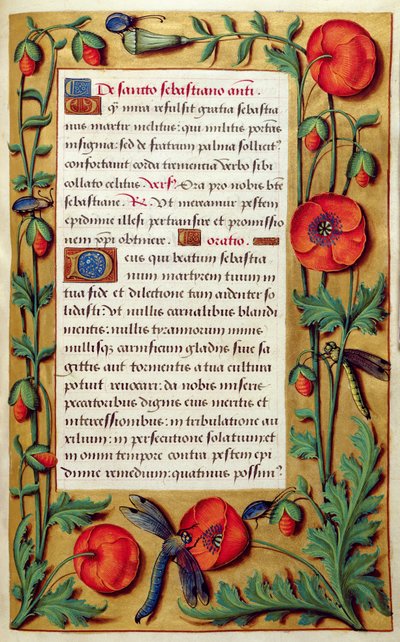 De sancto sebastiano anti.
O qm mira refulsit gratia sebastia
nus martir inclitus: qui militis portans
insignia: sed de fratrum palma sollicit9
confortauit corda trementia verbo sibi
collato celitus. Vers. Ora pro nobis bte
sebastiane. R. Vt mereamur pestem
epidimie illesi pertransire et promissio
nem xpi obtinere. oratio.
Deus qui beatum sebastia
num martyrem tuum in
tua fide et dilectione tam ardenter so
lidasti: Vt nullis carnalibus blandi
mentis: nullis tyrannorum minis
nullisque carnificum gladiis siue sa
gittis aut tormentis a tua cultura
potuit reuocari: da nobis miseris
peccatoribus dignis eius meritis et
intercessionibus: in tribulatione au
xilium: in persecutione solatium: et
in omni tempore contra pestem epi
dimie remedium: quatinus possim9